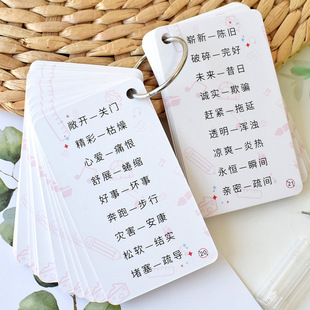 敞开—关门
精彩—枯燥
心爱—痛恨
舒展—蜷缩
好事—坏事
奔跑—步行
灾害—安康
松软—结实
堵塞—疏导
20
崭新—陈旧
破碎—完好
未来—昔日
诚实—欺骗
赶紧—拖延
透明—浑浊
凉爽—炎热
永恒—瞬间
亲密—疏间
21